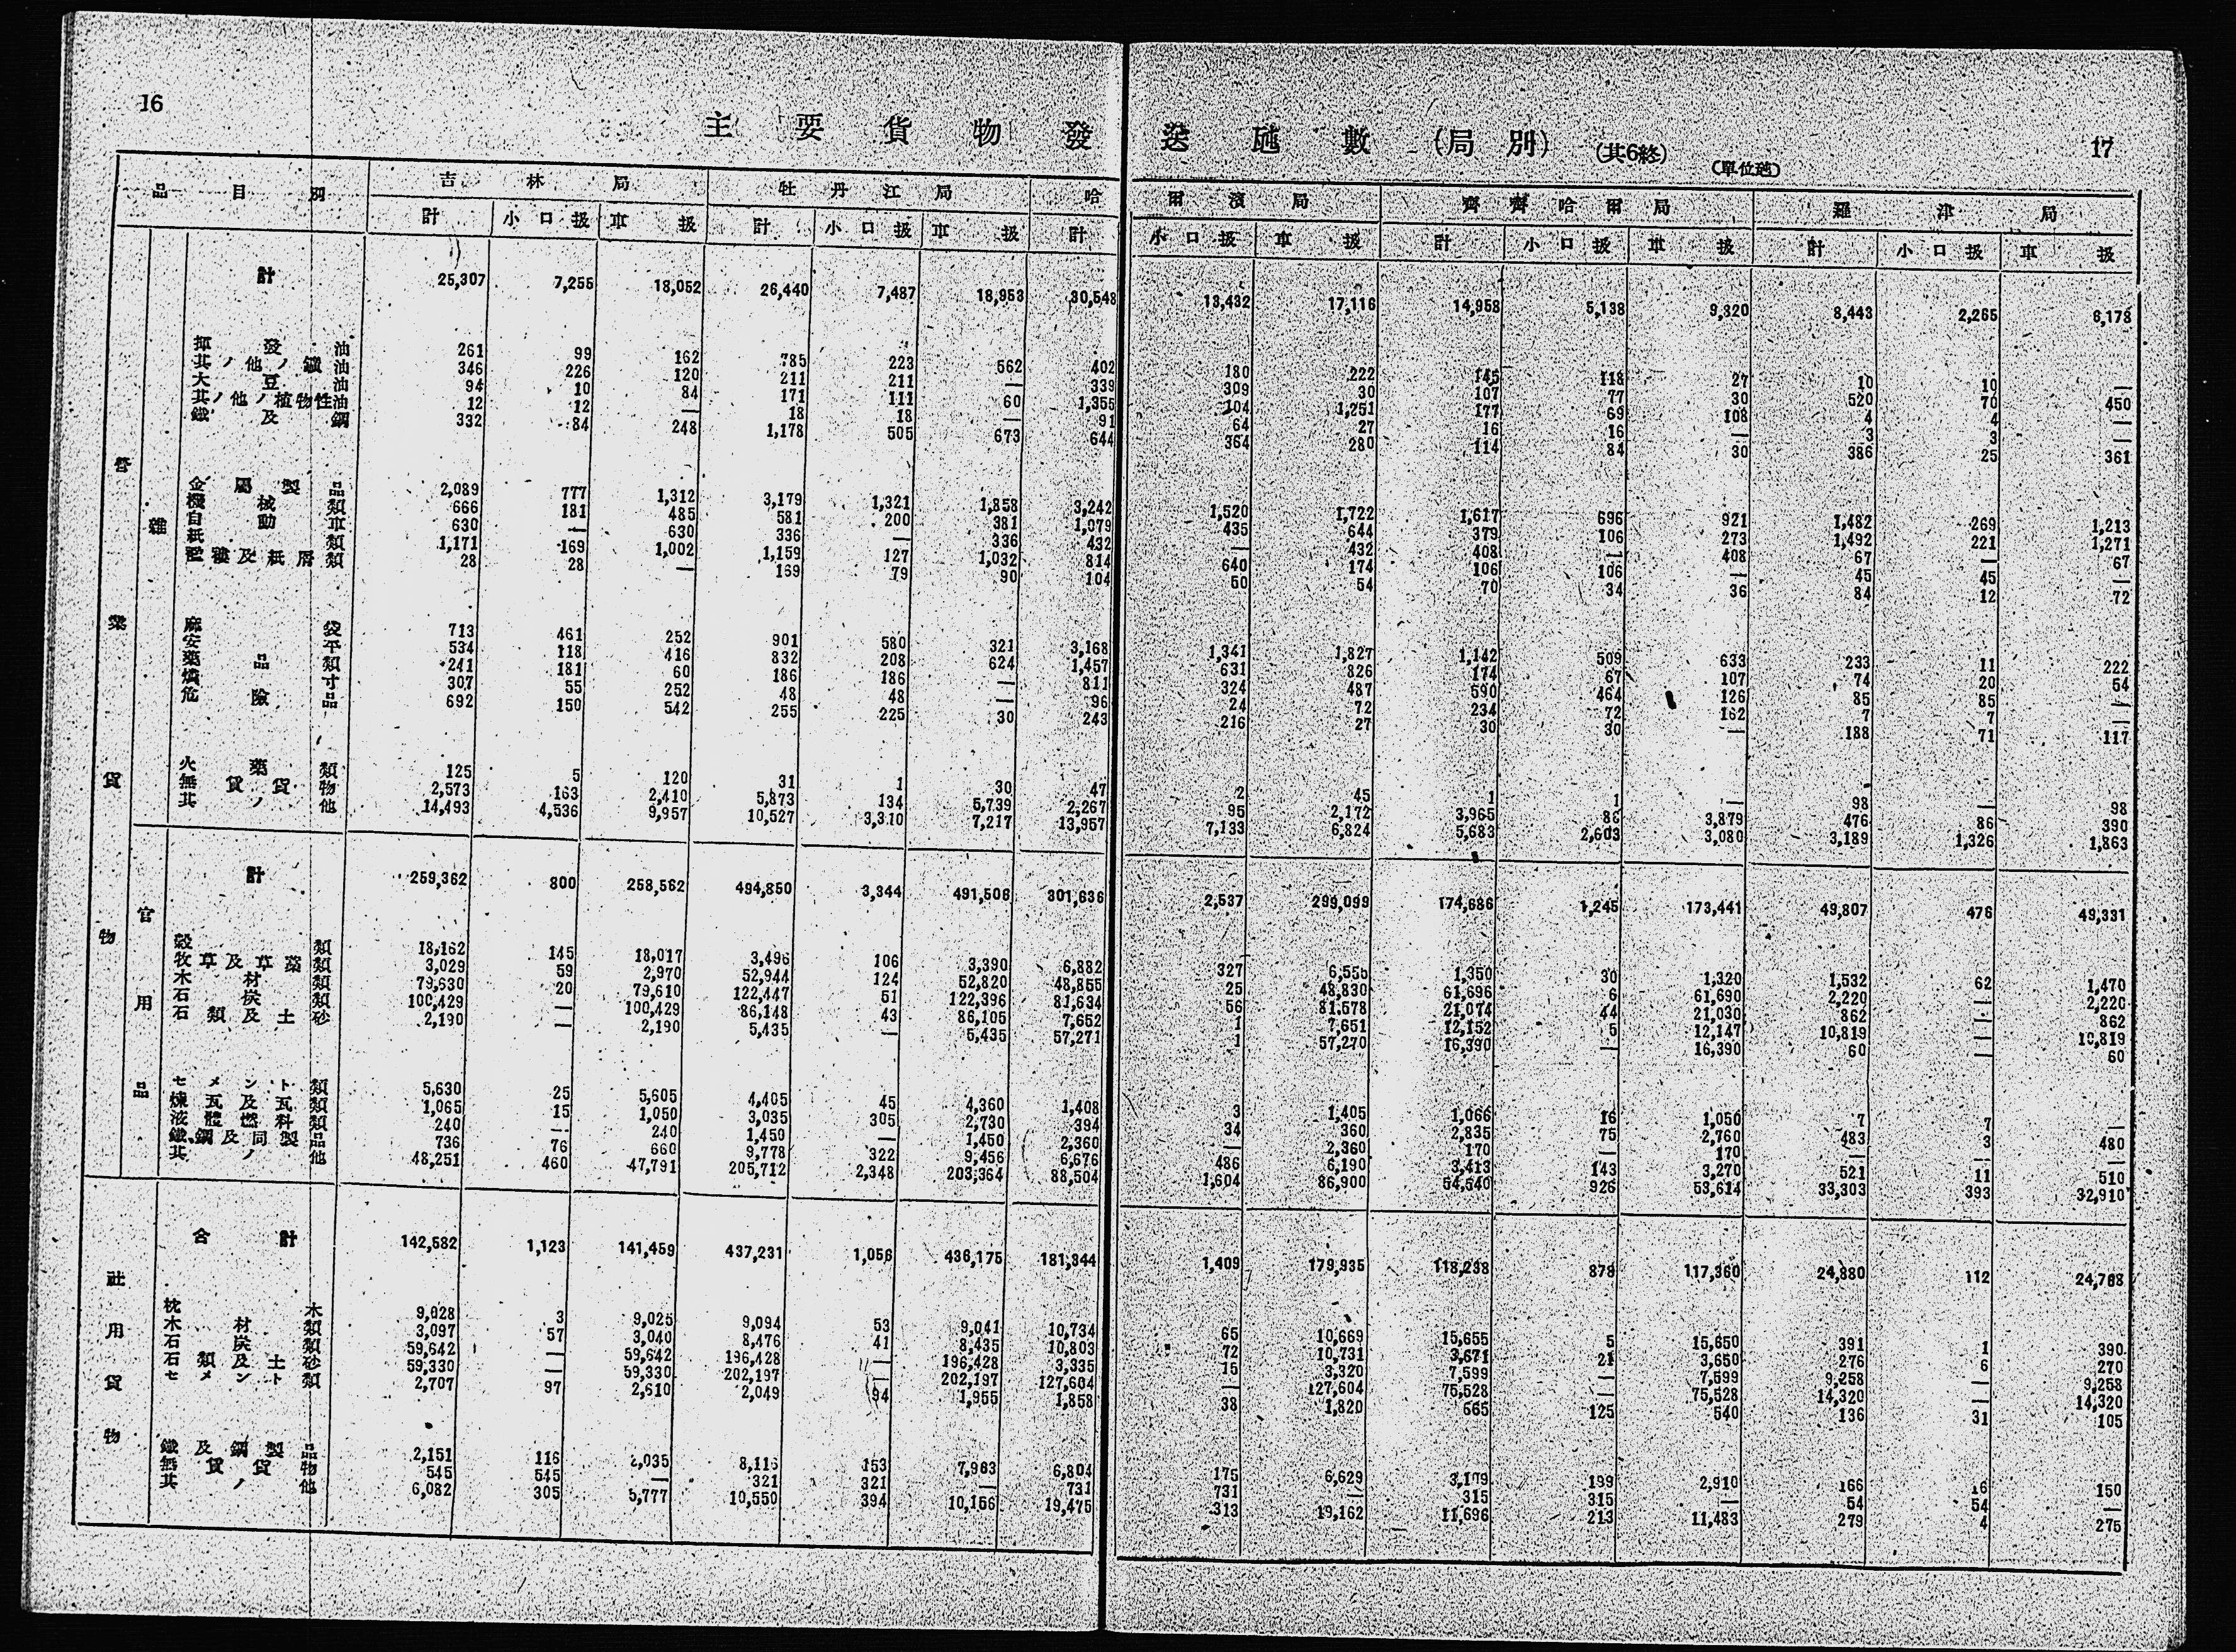 16
主要貨物發送瓲數 (局別) (共6終)
(單位瓲)
17
品目別 吉林局 牡丹江局 哈爾濱局 齊齊哈爾局 羅津局
計 小口扱 車扱 計 小口扱 車扱 計 小口扱 車扱 計 小口扱 車扱 計 小口扱 車扱
營業貨物
雜
計 25,307 7,255 18,052 26,440 7,487 18,953 30,548 13,432 17,116 14,958 5,138 9,820 8,443 2,265 6,178
揮發油 261 99 162 785 223 562 402 180 222 145 118 27 10 10 —
其ノ他ノ鑛油 346 226 120 211 211 — 339 309 30 107 77 30 520 70 450
大豆油 94 10 84 171 111 60 1,355 104 1,251 177 69 108 4 4 —
其ノ他ノ植物性油 12 12 — 18 18 — 91 64 27 16 16 — 3 3 —
鐵及鋼 332 84 248 1,178 505 673 644 364 280 114 84 30 386 25 361
金屬製品 2,089 777 1,312 3,179 1,321 1,858 3,242 1,520 1,722 1,617 696 921 1,482 269 1,213
機械類 666 181 485 581 200 381 1,079 435 644 379 106 273 1,492 221 1,271
自動車 630 — 630 336 — 336 432 — 432 408 — 408 67 — 67
紙類 1,171 169 1,002 1,159 127 1,032 814 640 174 106 106 — 45 45 —
及紙屑類 28 28 — 169 79 90 104 50 54 70 34 36 84 12 72
麻袋 713 461 252 901 580 321 3,168 1,341 1,827 1,142 509 633 233 11 222
安平 534 118 416 832 208 624 1,457 631 826 174 67 107 74 20 54
藥品類 241 181 60 186 186 — 811 324 487 590 464 126 85 85 —
燐寸 307 55 252 48 48 — 96 24 72 234 72 162 7 7 —
危險品 692 150 542 255 225 30 243 216 27 30 30 — 188 71 117
火藥類 125 5 120 31 1 30 47 2 45 1 1 — 98 — 98
無賃貨物 2,573 163 2,410 5,873 134 5,739 2,267 95 2,172 3,965 86 3,879 476 86 390
其ノ他 14,493 4,536 9,957 10,527 3,310 7,217 13,957 7,133 6,824 5,683 2,603 3,080 3,189 1,326 1,863
官用品
計 259,362 800 258,562 494,850 3,344 491,506 301,636 2,537 299,099 174,686 1,245 173,441 49,807 476 49,331
穀類 18,162 145 18,017 3,496 106 3,390 6,882 327 6,555 1,350 30 1,320 1,532 62 1,470
牧草及草藁類 3,029 59 2,970 52,944 124 52,820 48,855 25 48,830 61,696 6 61,690 2,220 — 2,220
木材類 79,630 20 79,610 122,447 51 122,396 81,634 56 81,578 21,074 44 21,030 862 — 862
石炭類 100,429 — 100,429 86,148 43 86,105 7,652 1 7,651 12,152 5 12,147 10,819 — 10,819
石類及土砂 2,190 — 2,190 5,435 — 5,435 57,271 1 57,270 16,390 — 16,390 60 — 60
セメント類 5,630 25 5,605 4,405 45 4,360 1,408 3 1,405 1,066 16 1,050 7 7 —
煉瓦及瓦類 1,065 15 1,050 3,035 305 2,730 394 34 360 2,835 75 2,760 483 3 480
液體燃料類 240 — 240 1,450 — 1,450 2,360 — 2,360 170 — 170 — — —
鐵鋼及同製品 736 76 660 9,778 322 9,456 6,676 486 6,190 3,413 143 3,270 521 11 510
其ノ他 48,251 460 47,791 205,712 2,348 203,364 88,504 1,604 86,900 54,540 926 53,614 33,303 393 32,910
社用貨物
合計 142,582 1,123 141,459 437,231 1,056 436,175 181,344 1,409 179,935 118,238 878 117,360 24,880 112 24,768
枕木 9,028 3 9,025 9,094 53 9,041 10,734 65 10,669 15,655 5 15,650 391 1 390
木材類 3,097 57 3,040 8,476 41 8,435 10,803 72 10,731 3,671 21 3,650 276 6 270
石炭類 59,642 — 59,642 196,428 — 196,428 3,335 15 3,320 7,599 — 7,599 9,258 — 9,258
石類及土砂 59,330 — 59,330 202,197 — 202,197 127,604 — 127,604 75,528 — 75,528 14,320 — 14,320
セメント類 2,707 97 2,610 2,049 94 1,955 1,858 38 1,820 665 125 540 136 31 105
鐵及鋼製品 2,151 116 2,035 8,116 153 7,963 6,804 175 6,629 3,109 199 2,910 166 16 150
無賃貨物 545 545 — 321 321 — 731 731 — 315 315 — 54 54 —
其ノ他 6,082 305 5,777 10,550 394 10,156 19,475 313 19,162 11,696 213 11,483 279 4 275